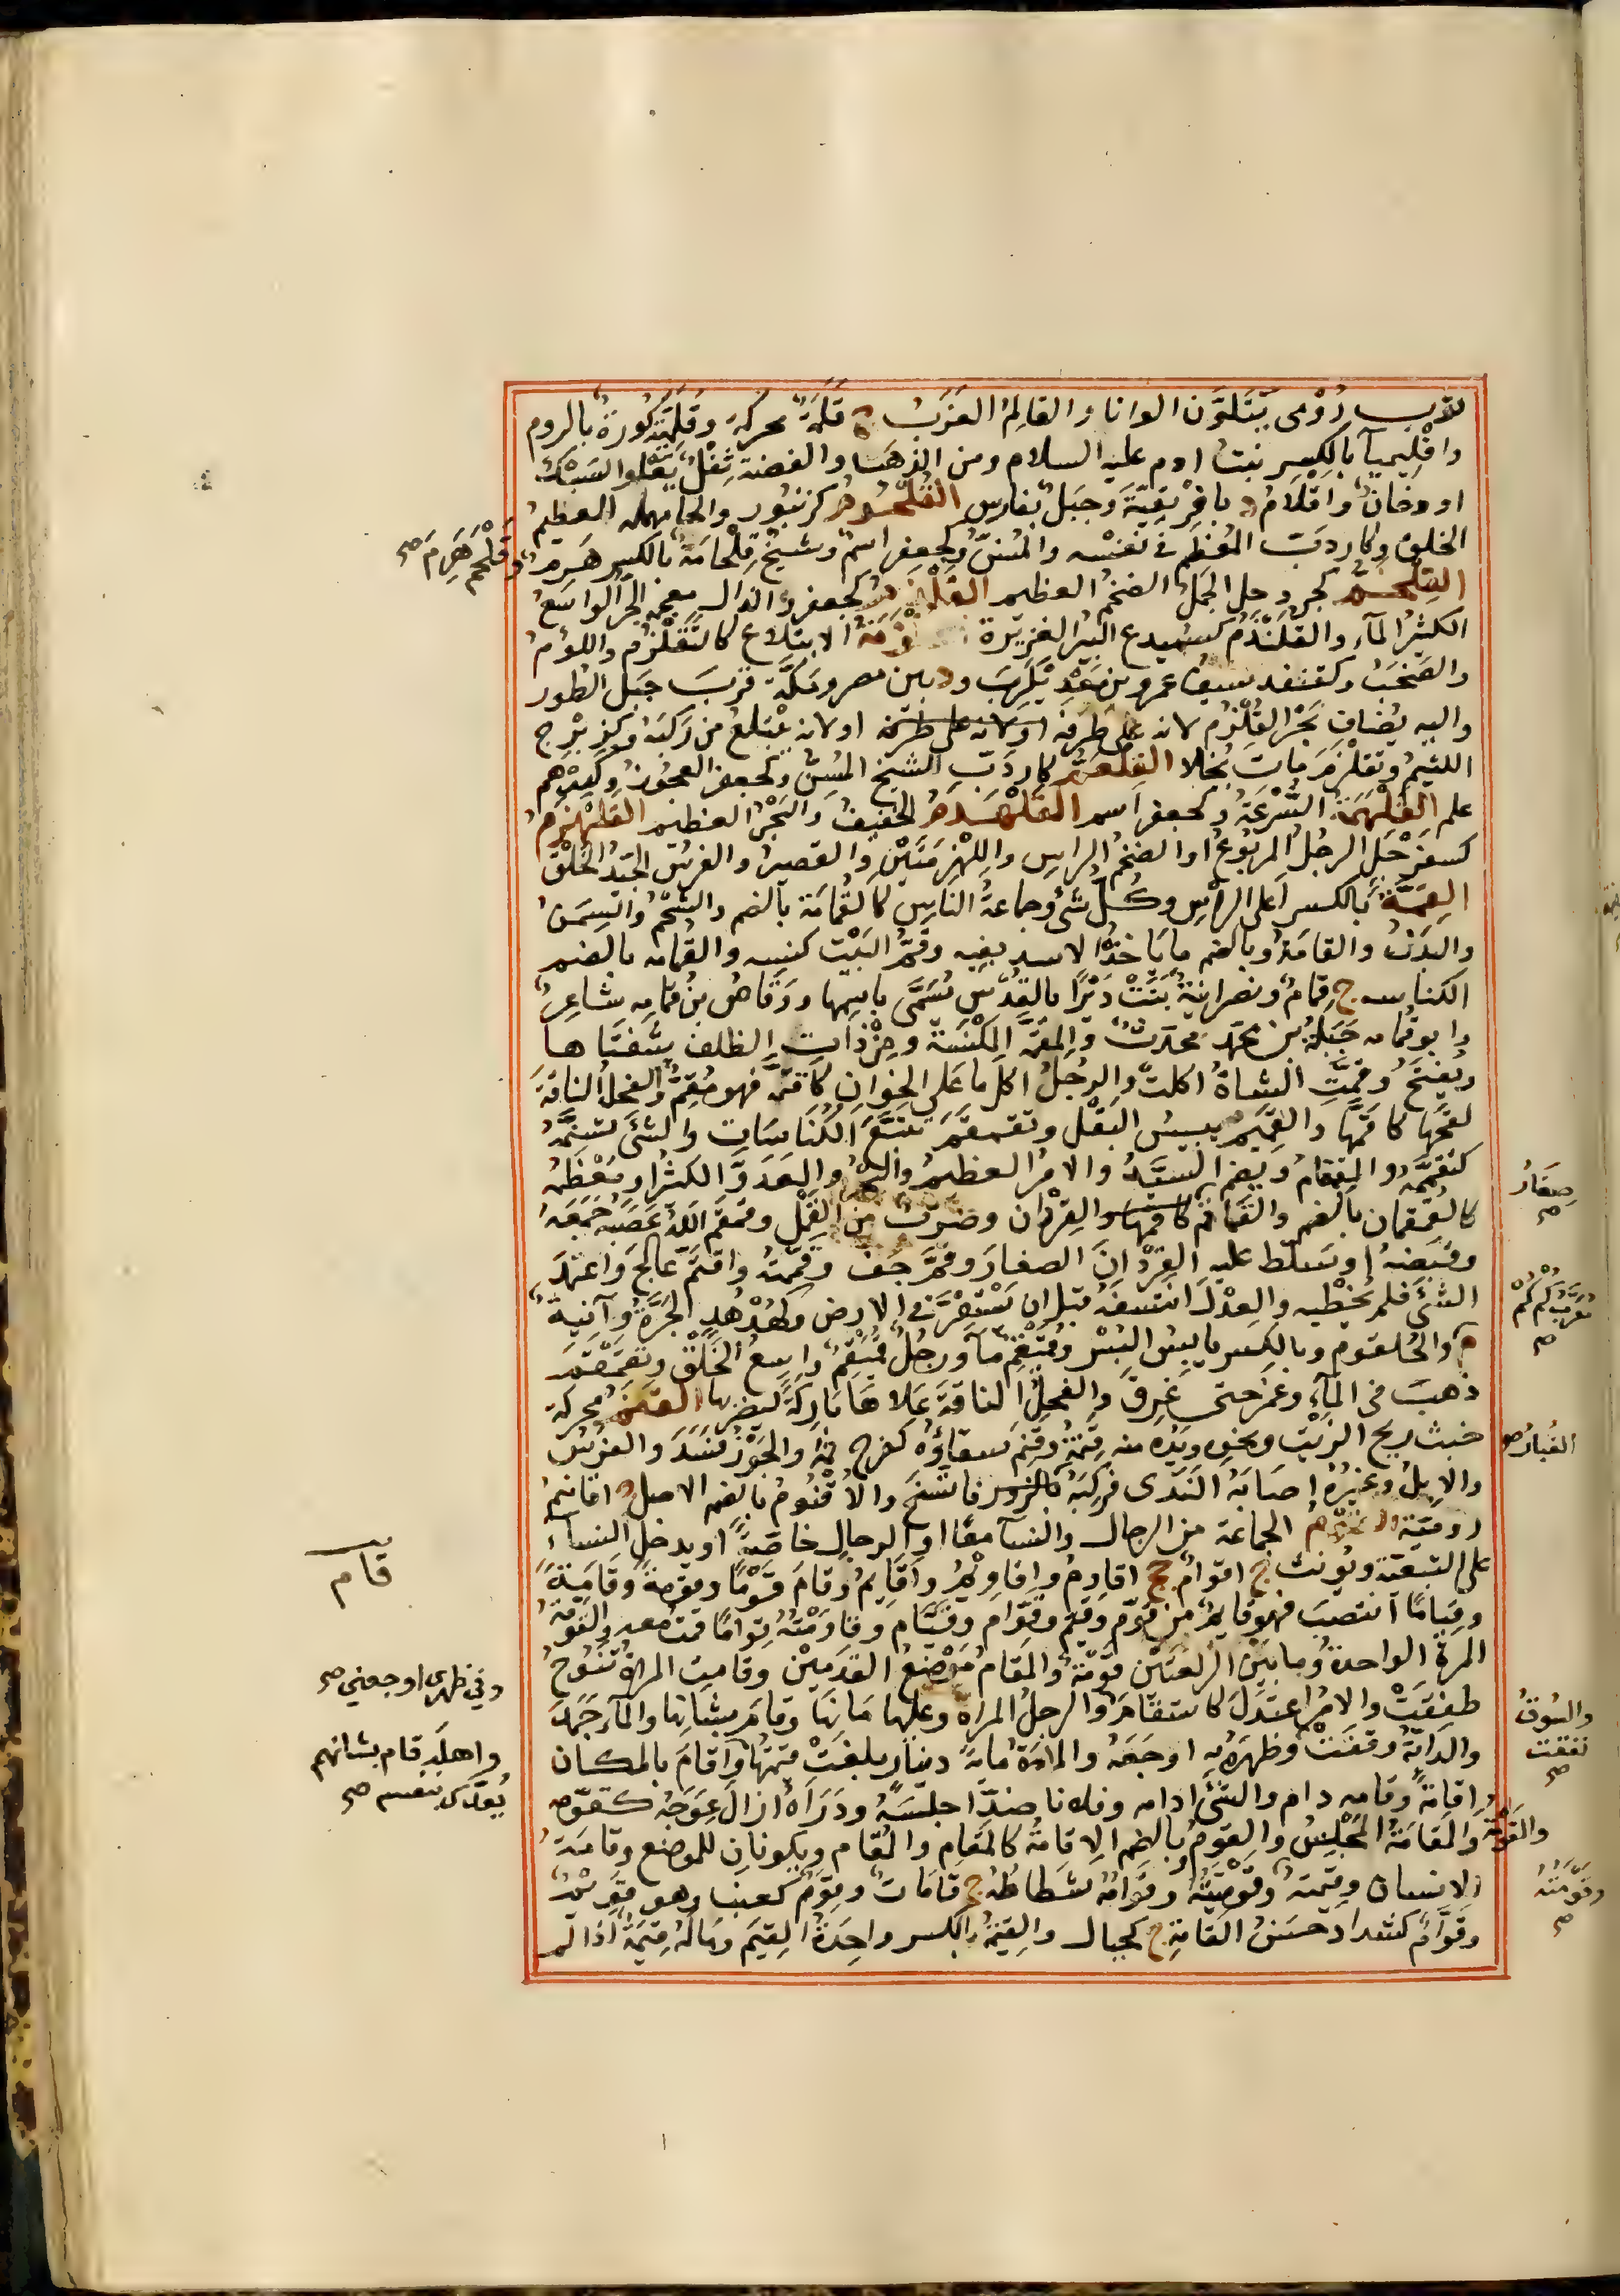 ثوب رومى يتلون الوانا والقالم العزب ج قلمة محركة وقلمية كورة بالروم
واقليميآ بالكسر بنت ادم عليه السلام ومن الذهب والفضة ثفل يعلوا السبك
او دخان واقلام د بافريقية وجبل بفارس القلحوم كزنبور والحا مهمله العظيم
الخلق وكاردب المعظم فى نفسه والمسن وكجعفر اسم وشيخ قلحامة بالكسر هرم
وقلحم هرم صح
القلخم كجردحل الجمل الضخم العظيم القلذم كجعفر والذال معجمه البحر الواسع
الكثير المآء والقلندم كسميدع البير الغزيرة القلزمة الابتلاع كالتقلزم واللوم
والصخب وكقنفد سيف عمرو بن معديكرب ود بين مصر ومكة قرب جبل الطور
واليه يضاف بحر القلزم لانه على طرفه اولانه على طرفه اولانه يبتلع من ركبه وكزبرج
اللئيم وتقلزم مات بخلا القلعم كاردب الشيخ المسن وكجعفر العجوز وكدرهم
علم القلهمة السرعة وكجعفر اسم القلهذم الخفيف والبحر العظيم القلهزم
كسفرجل الرجل المربوع او الضخم الراس واللهزمتين والقصير والفرس الجيد الخلق
القمة بالكسر اعلى الراس وكل شئ وجماعة الناس كالقمامة بالضم والشحم والسمن
والبدن والقامة وبالضم ما ياخذ الاسد بفيه وقم البيت كنسه والقمامه بالضم
الكناسه ج قمام ونصرانية بنت ديرا بالقدس يسمى باسمها ووقاص بن قمامه شاعر
وابو قمامه جبلة بن محمد محدث والمقمة المكنسة ومن ذات الظلف شفتاها
ويفتح وقمت الشاة اكلت والرجل اكل ما على الخوان كاقتم فهو مقم والفحل الناقة
لقحها كاقمها والقميم يبيس البقل وتقمقم تتبع الكناسات والشئ تسنمه
كتقممه والقمقام ويضم السيد والامر العظيم والبحر والعدد الكثير او معظمه
كالقمقمان بالضم والقماقم كاقمها والقردان وضرب من القمل وقمقم الله عصبه جمعه
صغار
صح
وقبضه او سلط عليه القردان الصغار وقم جف وقممته واقتم عالج واعتمد
الشئ فلم يخطيه والعدل انتسفه قبل ان يستقر فى الارض وكهدهد الجرة وآنية
معرب كمكم
صح
م والحلقوم وبالكسر يابس البسر ومتقمقم مآ ورجل قيقم واسع الخلق وتقمقم
ذهب فى المآء وغمر حتى غرق والفحل الناقة علاها باركة ليضربها القنم محركة
خبث ريح الزيت ونحوه ويده منه قنمة وقنم سقاؤه كفرح تمه والجوز فسد والفرس
الغبار صح
والابل وغيره اصابه الندى فركبه كالروير فاتسخ والاقنوم بالضم الاصل ج اقانيم
رومية القوم الجماعة من الرجال والنسآ معا او الرجال خاصة او يدخل النسآء
قام
على التبعية ويونث ج اقوام جج اقاوم واقاويم واقايم وقام قوما وقومة وقامة
وقياما انتصب فهو قايم من قوم وقيم وقوام وقيام وقاومته قواما قمت معه والقومة
المرة الواحدة وما بين الركعتين قومة والمقام موضع القدمين وقامت المراة تنوح
طفقت والامر اعتدل كاستقام والرجل المراة وعليها مانها وقام بشانها والمآ جمد
وفي ظهرى اوجعني صح
والسوق
نفقت
صح
والدابة وقفت وظهره به اوجعه والامة مايه دينار بلغت قيمتها واقام بالمكان
واهله قام بشانهم
يعدى بنفسه صح
اقامة وقامه دام والشئ ادامه وفلانا ضد اجلسه ودرأه ازال عوجه كقومه
والمقامة المجلس والقوم بالضم الاقامة كالمقام والمقام ويكونان للموضع وقامة
والقومة
الانسان وقيمته وقوميته وقوامه شطاطه ج قامات وقيم كعنب وهو قويم
وقومته
صح
وقوام كشداد حسن القامة ج كجبال والقيمة بالكسر واحدة القيم وماله قيمة اذا لم